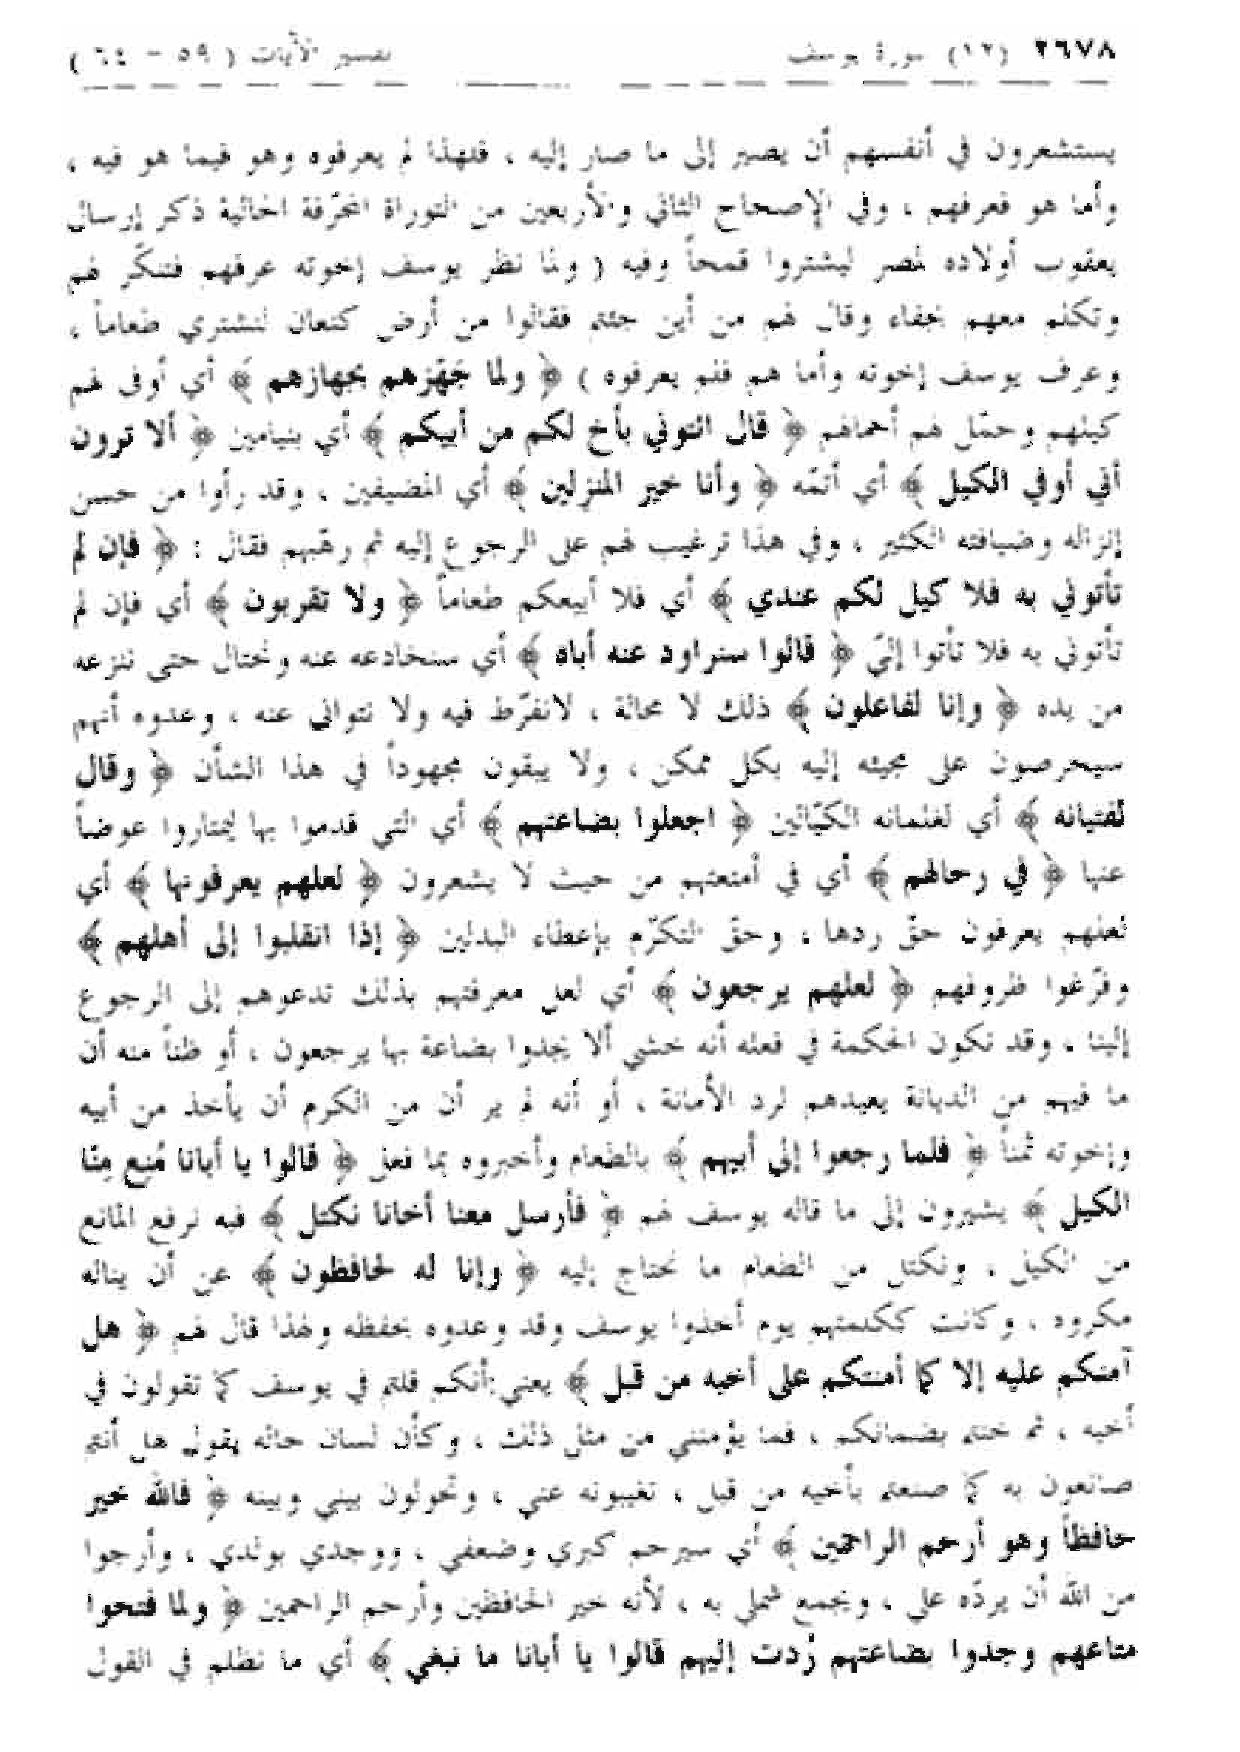 ٢٦٧٨ (١٢) سورة يوسف تفسير الآيات ( ٥٩ - ٦٤ )
يستشعرون في أنفسهم أن يصير إلى ما صار إليه ، فلهذا لم يعرفوه وهو فيما هو فيه ،
وأما هو فعرفهم ، وفي الإصحاح الثاني والأربعين من التوراة المحرّفة الحالية ذكر إرسال
يعقوب أولاده لمصر ليشتروا قمحاً وفيه ( ولما نظر يوسف إخوته عرفهم فتنكّر لهم
وتكلم معهم بجفاء وقال لهم من أين جئتم فقالوا من أرض كنعان لنشتري طعاماً ،
وعرف يوسف إخوته وأما هم فلم يعرفوه ) ﴿ ولما جَهّزهم بجهازهم ﴾ أي أوفى لهم
كيلهم وحمّل لهم أحمالهم ﴿ قال ائتوني بأخ لكم من أبيكم ﴾ أي بنيامين ﴿ ألا ترون
أني أوفي الكيل ﴾ أي أتمّه ﴿ وأنا خير المنزلين ﴾ أي المضيفين ، وقد رأوا من حسن
إنزاله وضيافته الكثير ، وفي هذا ترغيب لهم على الرجوع إليه ثم رهّبهم فقال : ﴿ فإن لم
تأتوني به فلا كيل لكم عندي ﴾ أي فلا أبيعكم طعاماً ﴿ ولا تقربون ﴾ أي فإن لم
تأتوني به فلا تأتوا إليّ ﴿ قالوا سنراود عنه أباه ﴾ أي سنخادعه عنه ونحتال حتى ننزعه
من يده ﴿ وإنا لفاعلون ﴾ ذلك لا محالة ، لانفرّط فيه ولا نتوانى عنه ، وعدوه أنهم
سيحرصون على مجيئه إليه بكل ممكن ، ولا يبقون مجهوداً في هذا الشأن ﴿ وقال
لفتيانه ﴾ أي لغلمانه الكيّالين ﴿ اجعلوا بضاعتهم ﴾ أي التي قدموا بها ليمتاروا عوضاً
عنها ﴿ في رحالهم ﴾ أي في أمتعتهم من حيث لا يشعرون ﴿ لعلهم يعرفونها ﴾ أي
لعلهم يعرفون حقّ ردها ، وحقّ التكرّم بإعطاء البدلين ﴿ إذا انقلبوا إلى أهلهم ﴾
وفرّغوا ظروفهم ﴿ لعلهم يرجعون ﴾ أي لعل معرفتهم بذلك تدعوهم إلى الرجوع
إلينا ، وقد تكون الحكمة في فعله أنه خشي ألا يجدوا بضاعة بها يرجعون ، أو ظناً منه أن
ما فيهم من الديانة يعيدهم لرد الأمانة ، أو أنه لم ير أن من الكرم أن يأخذ من أبيه
وإخوته ثمناً ﴿ فلما رجعوا إلى أبيهم ﴾ بالطعام وأخبروه بما فعل ﴿ قالوا يا أبانا مُنِع مِنّا
الكيل ﴾ يشيرون إلى ما قاله يوسف لهم ﴿ فأرسل معنا أخانا نكتل ﴾ فبه نرفع المانع
من الكيل ، ونكتل من الطعام ما نحتاج إليه ﴿ وإنا له لحافظون ﴾ عن أن يناله
مكروه ، وكانت ككلمتهم يوم أخذوا يوسف وقد وعدوه بحفظه ولهذا قال لهم ﴿ هل
آمنكم عليه إلا كما أمنتكم على أخيه من قبل ﴾ يعني أنكم قلتم في يوسف كما تقولون في
أخيه ، ثم خنتم بضمانكم ، فما يؤمنني من مثل ذلك ، وكأن لسان حاله يقول هل أنتم
صانعون به كما صنعتم بأخيه من قبل ، تغيبونه عني ، وتحولون بيني وبينه ﴿ فالله خير
حافظاً وهو أرحم الراحمين ﴾ أي سيرحم كبري وضعفي ، ووجدي بولدي ، وأرجوا
من الله أن يردّه علي ، ويجمع شملي به ، لأنه خير الحافظين وأرحم الراحمين ﴿ ولما فتحوا
متاعهم وجدوا بضاعتهم رُدت إليهم قالوا يا أبانا ما نبغي ﴾ أي ما نظلم في القول